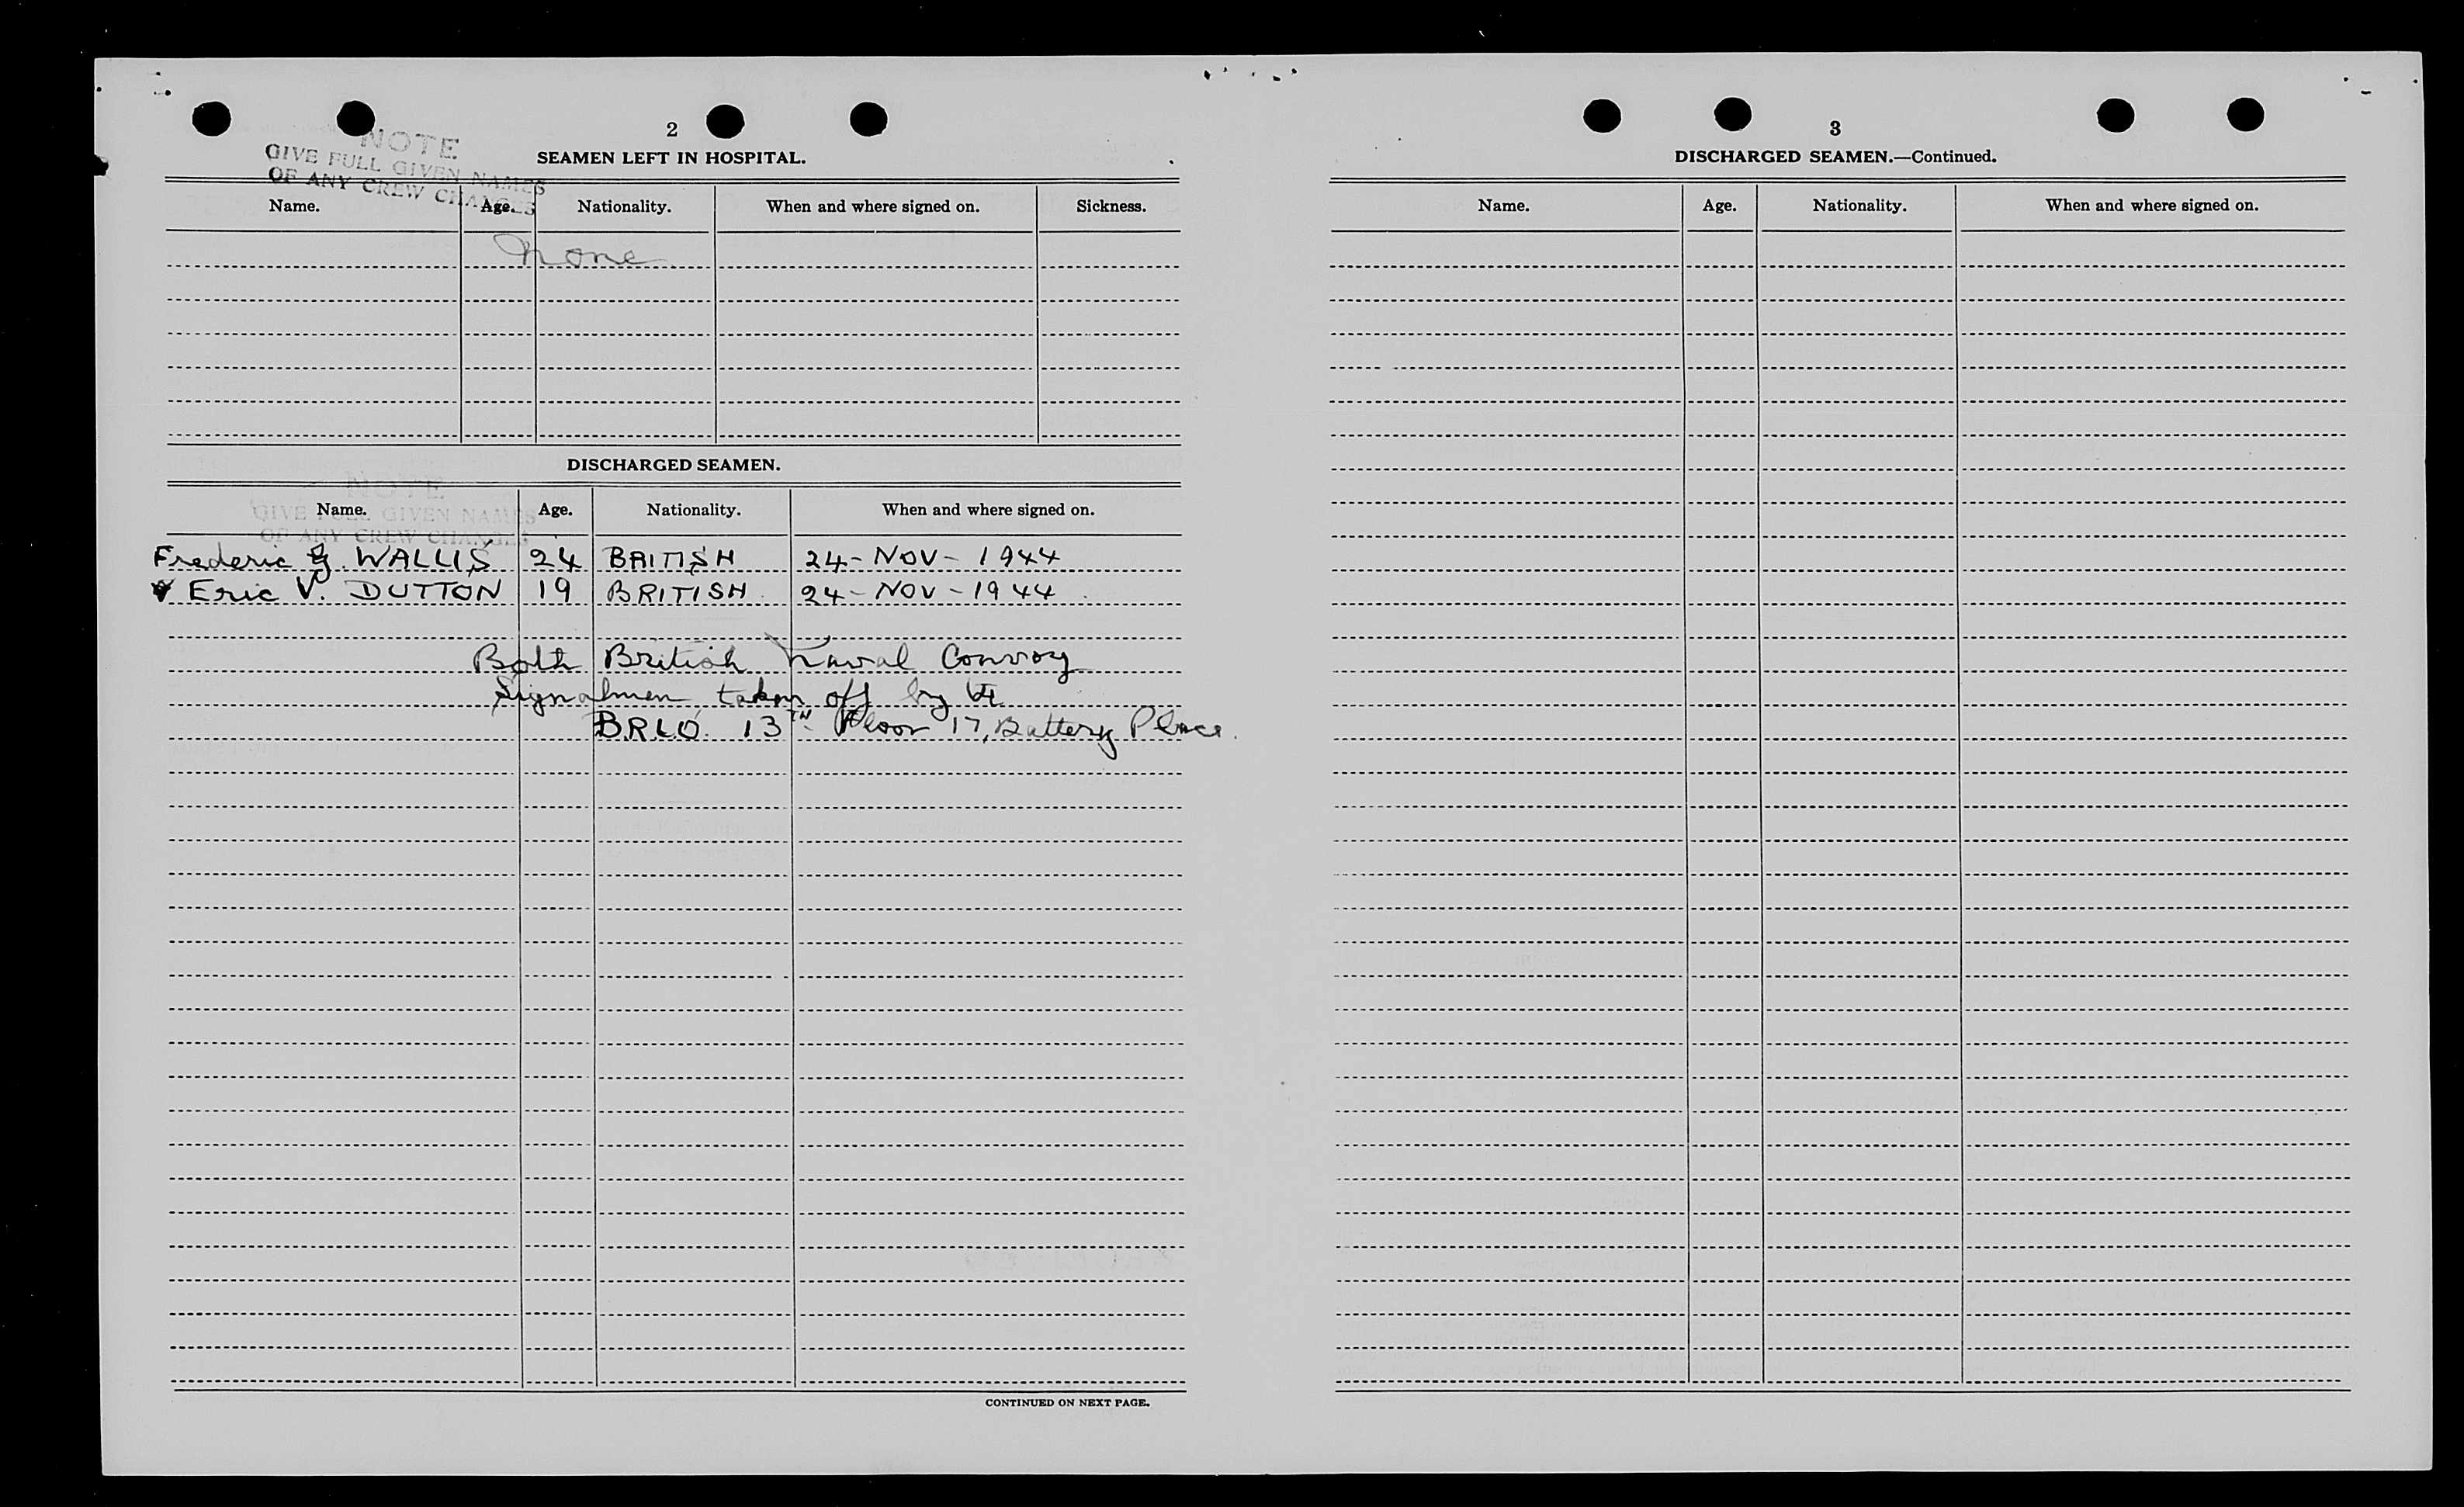 NOTE
GIVE FULL GIVEN NAMES
OF ANY CREW CHANGES
2
SEAMEN LEFT IN HOSPITAL.
Name. Age. Nationality. When and where signed on. Sickness.
None
DISCHARGED SEAMEN.
NOTE
GIVE FULL GIVEN NAMES
OF ANY CREW CHANGES
Name. Age. Nationality. When and where signed on.
Frederic G. WALLIS 24 BRITISH 24-NOV-1944
Eric V. DUTTON 19 BRITISH 24-NOV-1944
Both British Naval Convoy
Signalmen taken off by
B.R.L.O. 13TH Floor 17, Battery Place.
CONTINUED ON NEXT PAGE.
3
DISCHARGED SEAMEN.—Continued.
Name. Age. Nationality. When and where signed on.